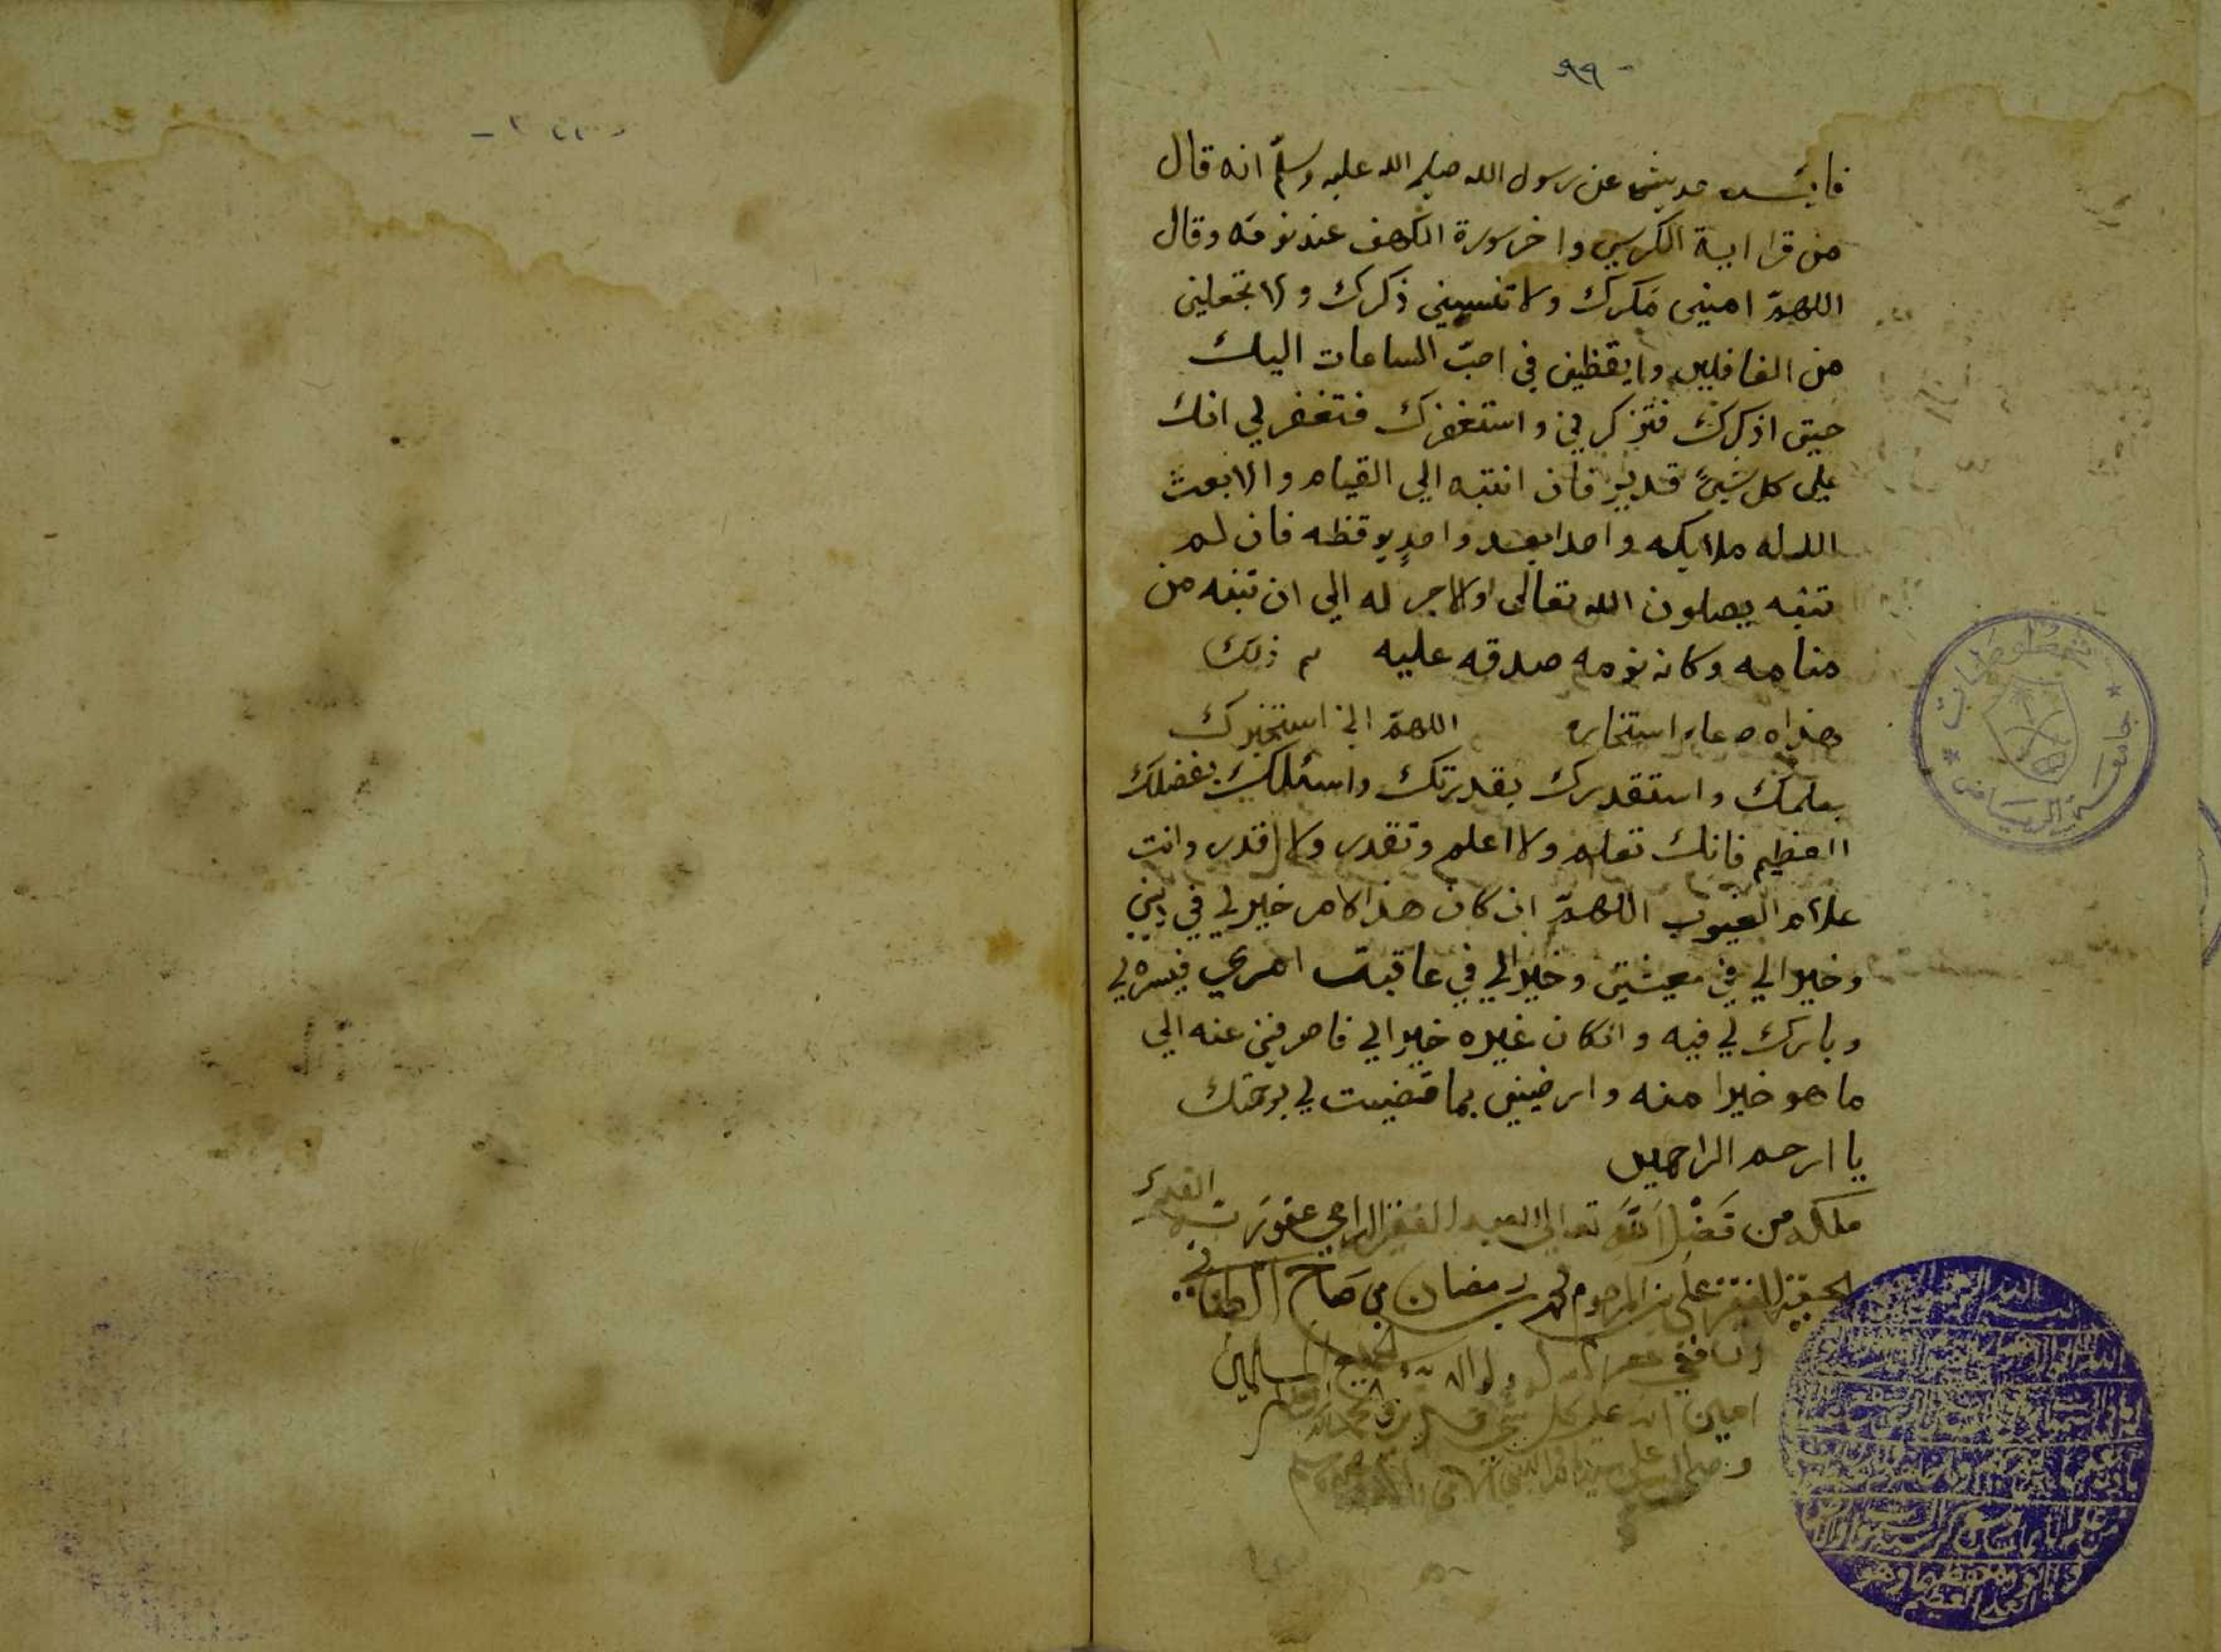 ٩٩
فايده حديث عن رسول الله صلى الله عليه وسلم انه قال
من قرا اية الكرسي واخر سورة الكهف عند نومه وقال
اللهم امني مكرك ولا تنسيني ذكرك ولا تجعلني
من الغافلين وايقظني في احب الساعات اليك
حتى اذكرك فتذكرني واستغفرك فتغفر لي انك
على كل شيء قدير فان انتبه الي القيام والا بعث
الله له ملايكه واحدا بعد واحد يوقظه فان لم
تنبه يصلون الله تعالى والاجر له الي ان تنبه من
منامه وكان نومه صدقه عليه تم ذلك
هذاه دعاء استخاره اللهم اني استخيرك
بعلمك واستقدرك بقدرتك واسئلك بفضلك
العظيم فانك تعلم ولا اعلم وتقدر ولا اقدر وانت
علام الغيوب اللهم ان كان هذا الامر خير لي في ديني
وخيرا لي في معيشتي وخيرا لي في عاقبت امري فيسره لي
وبارك لي فيه وانكان غيره خيرا لي فاصرفني عنه الي
ما هو خيرا منه وارضيني بما قضيت لي برحمتك
يا ارحم الراحمين
ملكه من فضل الله تعالى العبد الفقير الراجي عفو ربه القدير
الحقير الفقير علي بن المرحوم محمد رمضان بن صالح
الشافعي غفر الله له ولوالديه ولجميع المسلمين
امين انه على كل شي قدير
وصلى الله على سيدنا محمد النبي الامي وسلم
جامعة الرياض
مخطوطات
العلي العظيم